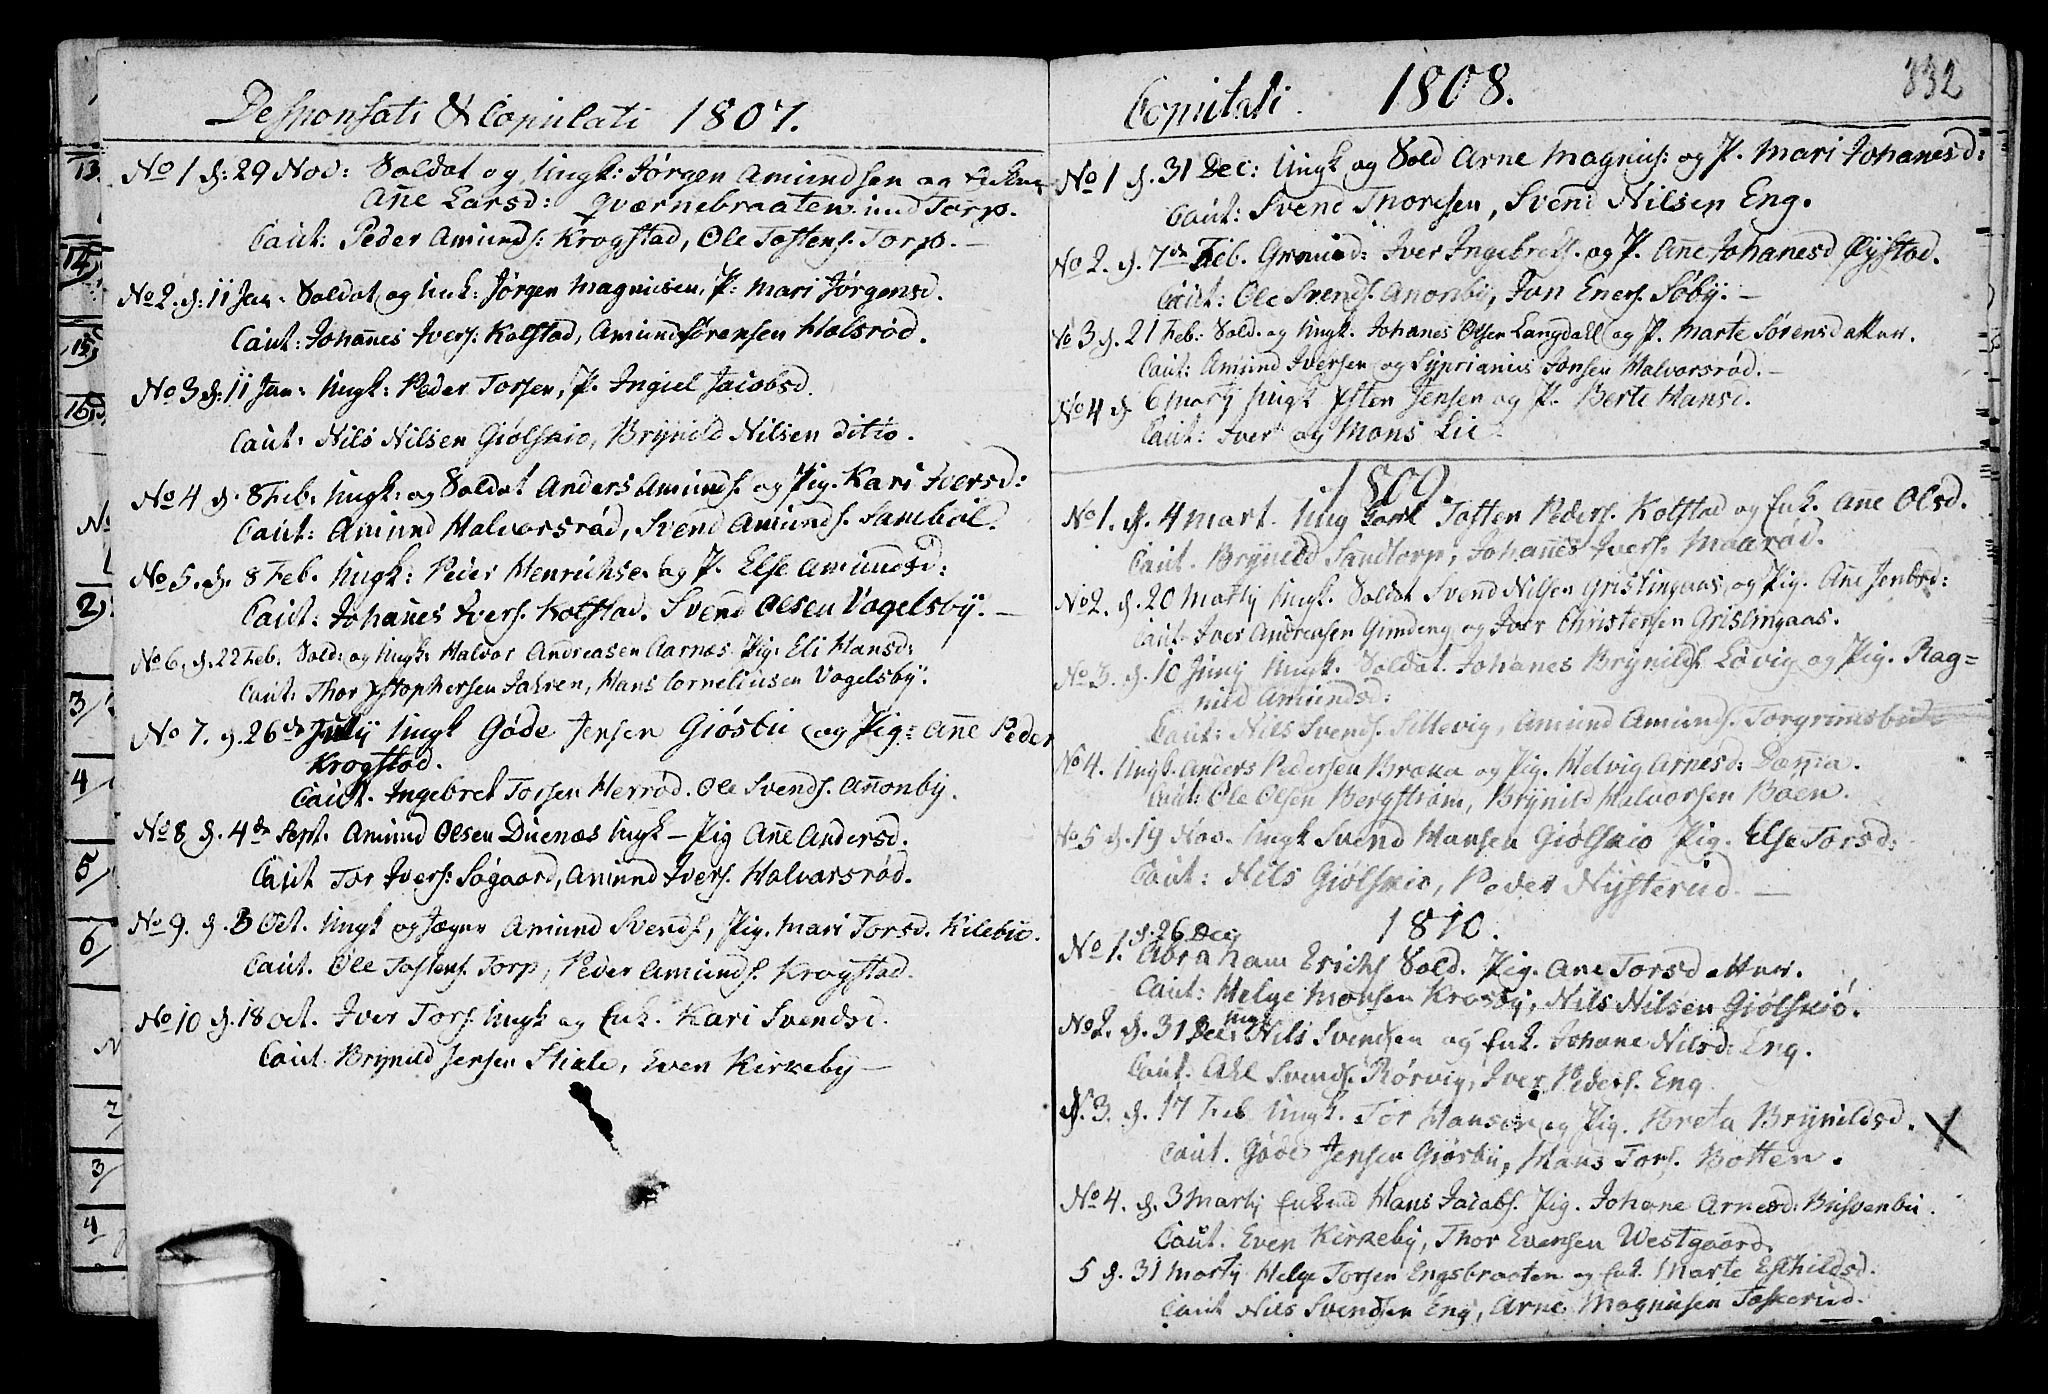 Desponsati & Copulati 1807.
No 1 d: 29 Nov: Soldat og Ungk: Jørgen Amundsen og
Añe Larsd: Qværnebraaten und Torp.
Caut: Peder Amunds: Krogstad, Ole Tostens: Torp. —
No 2. d: 11 Jan. Soldat og Unk: Jørgen Magnusen, P: Mari Jørgensd.
Caut: Johañes Ivers: Kolstad, Amund Sørensen Halsrød.
No 3 d: 11 Jan: Ungk: Peder Torsen, P. Ingiel Jacobsd.
Caut: Nils Nilsen Giølskio, Brynild Nilsen ditto.
No 4 d. 8 Feb. Ungk: og Soldat Anders Amunds. og Pig. Kari Iversd:
Caut: Amund Halvorsrød, Svend Amunds. Sambøl.
No 5. d. 8 Feb. Ungk: Peder Henrichse. og P. Else Amundsd:
Caut: Johañes Ivers. Kolstad. Svend Olsen Vogelsby. —
No 6. d. 22 Feb. Sold: og Ungk: Halvor Andreasen Aarnæs Pig: Eli Hansd:
Caut: Thor Istophersen Jahren, Hans Corneliusen Vogelsby.
No 7. d. 26de July Ungk Gøde Jensen Giøsbu og Pig: Añe Peder
Krogstad.
Caut. Ingebret Torsen Herrød. Ole Svends. Añonby.
No 8 d. 4de Sept. Amund Olsen Duenæs Ungk — Pig Añe Andersd.
Caut Tor Ivers: Søgaard, Amund Ivers. Halvorsrød.
No 9. d. 3 Oct. Ungk og Jæger Amund Svends, Pig. Mari Torsd. Kilebu.
Caut. Ole Tostens. Torp, Peder Amunds. Krogstad.
No 10 d. 18 Oct. Iver Tors. Ungk og Enk. Kari Svendsd.
Caut. Brynild Jensen Skiale, Even Kirkeby —
Copulati. 1808.
332
No 1 d. 31 Dec: Ungk og Sold Arne Magnus: og P. Mari Johanesd:
Caut: Svend Thoresen, Svend Nilsen Eng.
No 2. d. 7de Feb. Iver Ingebrets. og P. Añe Johanesd Øystad.
Caut: Ole Svends. Anonby, Jon Eners. Søby. —
No 3 d. 21 Feb: Sold. og Ungk. Johanes Olsen Langdall og P. Marte Sørensdatter.
Caut: Amund Iversen og Syprianus Jonsen Halvorsrød. —
No 4 d 6 Marty Ungk Isten Jensen og P. Berte Hansd.
Caut: Iver og Mons Lie.
1809.
No 1. d. 4 Mart. Ung Carl Tosten Peders. Kolstad og Enk. Añe Olsd.
Caut. Brynild Sandtorp, Johañes Ivers. Maarød.
No 2. d. 20 Marty Ungk. Soldat Svend Nilsen Grislingaas og Pig. Añe Jensd:
Caut. Iver Andreasen Gimdeng og Iver Christensen Grislingaas.
No 3. d. 10 Juny Ungk. Soldat Johanes Brynilds. Løvig og Pig. Rag=
nild Amundsd:
Caut: Nils Svends. Sillevig, Amund Amunds. Torgrimsbu
No 4. Ungk. Anders Pedersen Braka og Pig. Helvig Arnesd: Dania.
Caut: Ole Olsen Bergstrøm, Brynild Halvorsen Boen.
No 5 d. 19 Nov. Ungk Svend Hansen Giølskio Pig. Else Torsd:
Caut: Nils Giølskio, Peder Nysterud. —
1810.
d. 26 Dec
No 1. Abraham Erichs Sold. Pig. Ane Torsdatter.
Caut: Helge Monsen Krosby, Nils Nilsen Giølskiø.
No 2. d. 31 Dec: Ungk Nils Svendsen og Enk. Johane Nilsd: Eng.
Caut. Axel Svends. Rørvig, Iver Peders. Eng
N. 3. d. 17 Feb Ungk. Tor Hansen og Pig. Greta Brynildsd. X
Caut. Gøde Jensen Giøsbu, Hans Tors. Botten.
No 4. d. 3 Marty Enkemd Hans Jacobs. Pig. Johane Arnesd: Busvenbu.
Caut. Even Kirkeby, Thor Evensen Westgaard.
5 d. 31 Marty Helge Torsen Engsbraaten og Enk. Marte Eskildsd:
Caut Nils Svendsen Eng, Arne Magnusen Toskerud.